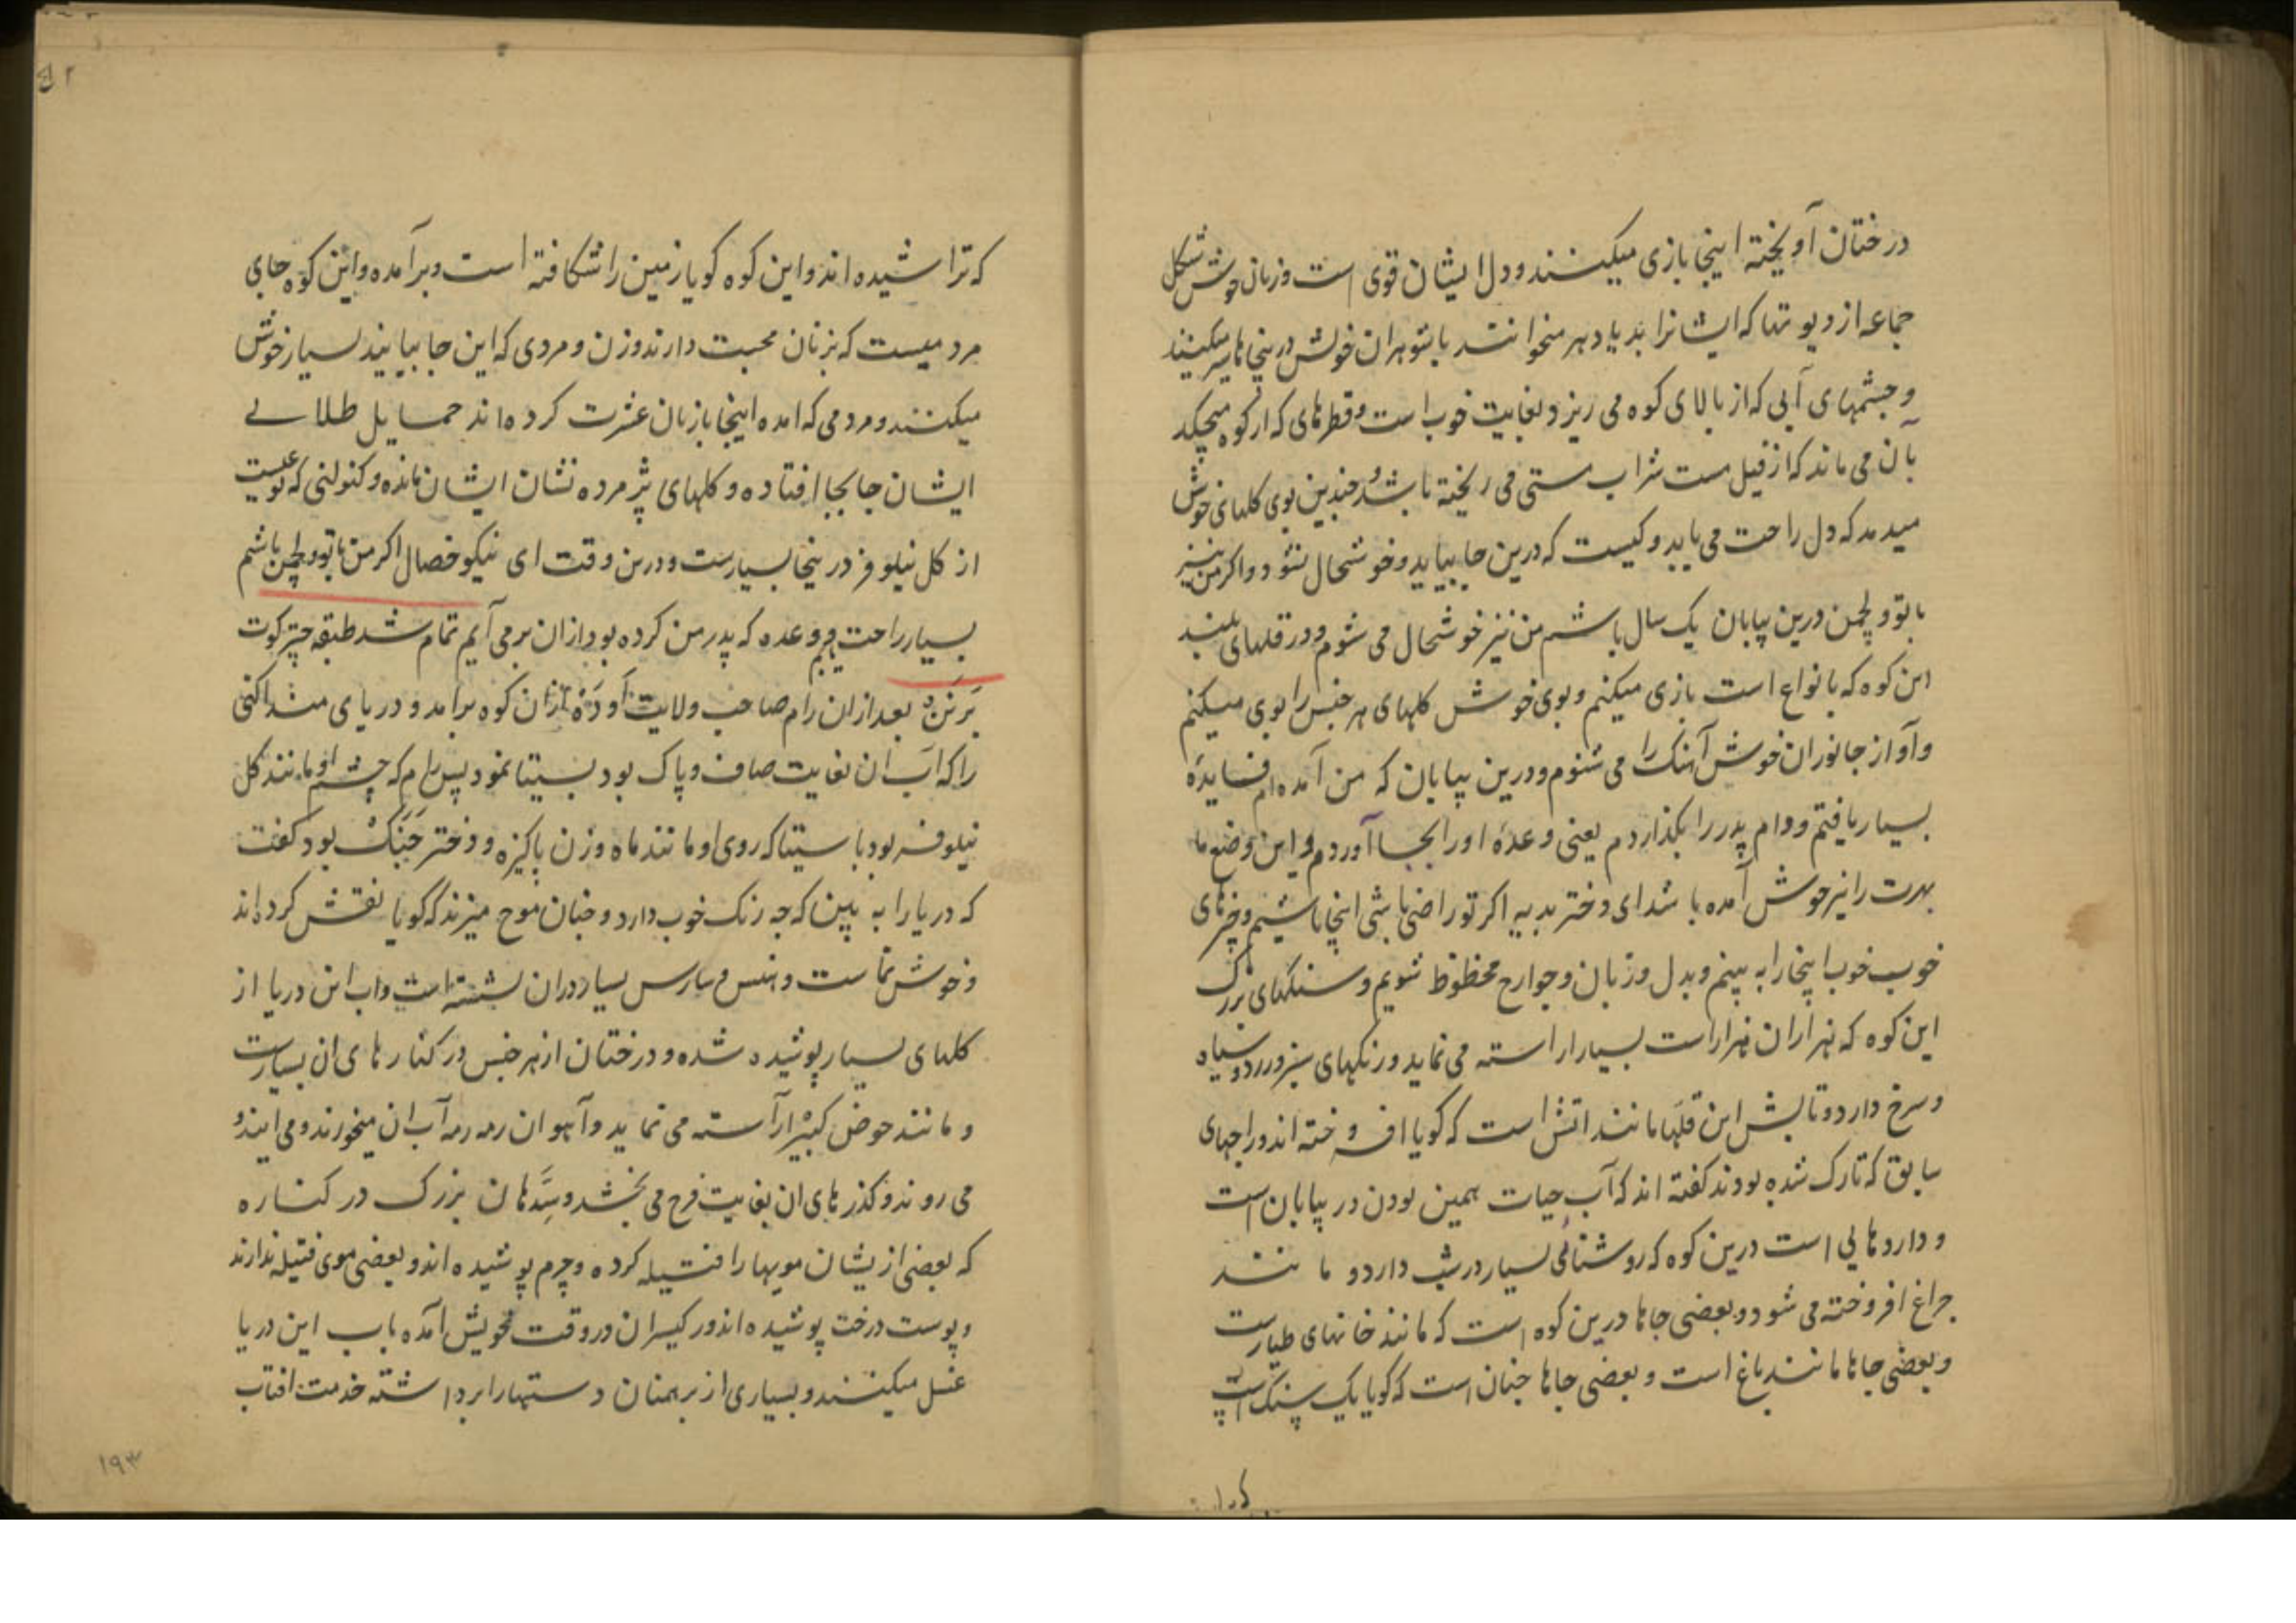 درختان آویخته اینجا بازی میکنند و دل ایشان قوی است و زنان خوش شکل
جماعه از دیوتها که ایشانرا بدیادهر میخوانند با شوهران خویش درینجاها سیر میکنند
و چشمهای آبی که از بالای کوه می ریزد بغایت خوب است و قطرهای که از کوه میچکد
بآن می ماند که از فیل مست شراب مستی می ریخته باشد و چندین بوی کلهای خوش
میدمد که دل راحت می یابد و کیست که درین جا بیاید و خوشحال نشود و اکر من نیز
با تو و لچمن درین بیابان یک سال باشم من نیز خوشحال می شوم و در قلهای بلند
این کوه که بانواع است بازی میکنم و بوی خوش کلهای هر جنس را بوی میکنم
و آواز جانوران خوش آهنک را می شنوم و درین بیابان که من آمده ام فایده
بسیار یافتم و وام پدر را بکذاردم یعنی وعده او را بجا آوردم و این وضع ما
بهرت را نیز خوش آمده باشد ای دختر بدیه اکر تو راضی باشی اینجا باشیم و چیزهای
خوب خوب اینجا را به بینم و بدل و زبان و جوارح محظوظ شویم و سنکهای بزرک
این کوه که هزاران هزار است بسیار اراسته می نماید و رنکهای سبز و زرد و سیاه
و سرخ دارد و تابش این قلها مانند اتش است که کویا افروخته اند و راجهای
سابق که تارک شده بودند کفته اند که آب حیات همین بودن در بیابان است
و داروهایی است درین کوه که روشنائی بسیار در شب دارد و مانند
چراغ افروخته می شود و بعضی جاها درین کوه است که مانند خانهای طیار است
و بعضی جاها مانند باغ است و بعضی جاها چنان است که کویا یک سنک است
که تراشیده اند و این کوه کویا زمین را شکافته است و برآمده و این کوه جای
مردمیست که بزنان محبت دارند و زن و مردی که این جا بیایند بسیار خوش
میکنند و مردمی که امده اینجا با زنان عشرت کرده اند حمایل طلائی
ایشان جابجا افتاده و کلهای پژمرده نشان ایشان مانده و کنولنی که نوعیست
از کل نیلوفر در ینجا بسیارست و درین وقت ای نیکو خصال اکر من با تو و لچمن باشم
بسیار راحت یابم و وعده که پدر من کرده بود ازان برمی آیم تمام شد طبقه چترکوت
بَرنَن بعد ازان رام صاحب ولایت اَوَدَه ازان کوه برآمد و دریای منداکنی
را که آب ان بغایت صاف و پاک بود بسیتا نمود پس رام که چشم او مانند کل
نیلوفر بود با سیتا که روی او مانند ماه و زن پاکیزه و دختر جَنَک بود کفت
که دریا را به بین که چه رنک خوب دارد و چنان موج میزند که کویا نقش کرده اند
و خوش نماست و هنس و سارس بسیار دران نشسته است و اب این دریا از
کلهای بسیار پوشیده شده و درختان از هر جنس در کنارهای ان بسیارست
و مانند حوض کبیر آراسته می نماید و آهوان رمه رمه آب ان میخورند و می ایند و
می روند و کذرهای ان بغایت فرح می بخشد و سِدّهان بزرک در کناره
که بعضی از یشان مویها را فتیله کرده و چرم پوشیده اند و بعضی موی فتیله ندارند
و پوست درخت پوشیده اند و رکیسران در وقت خویش آمده باب این دریا
غسل میکنند و بسیاری از برهمنان دستها را برداشته خدمت افتاب
۱۹۳